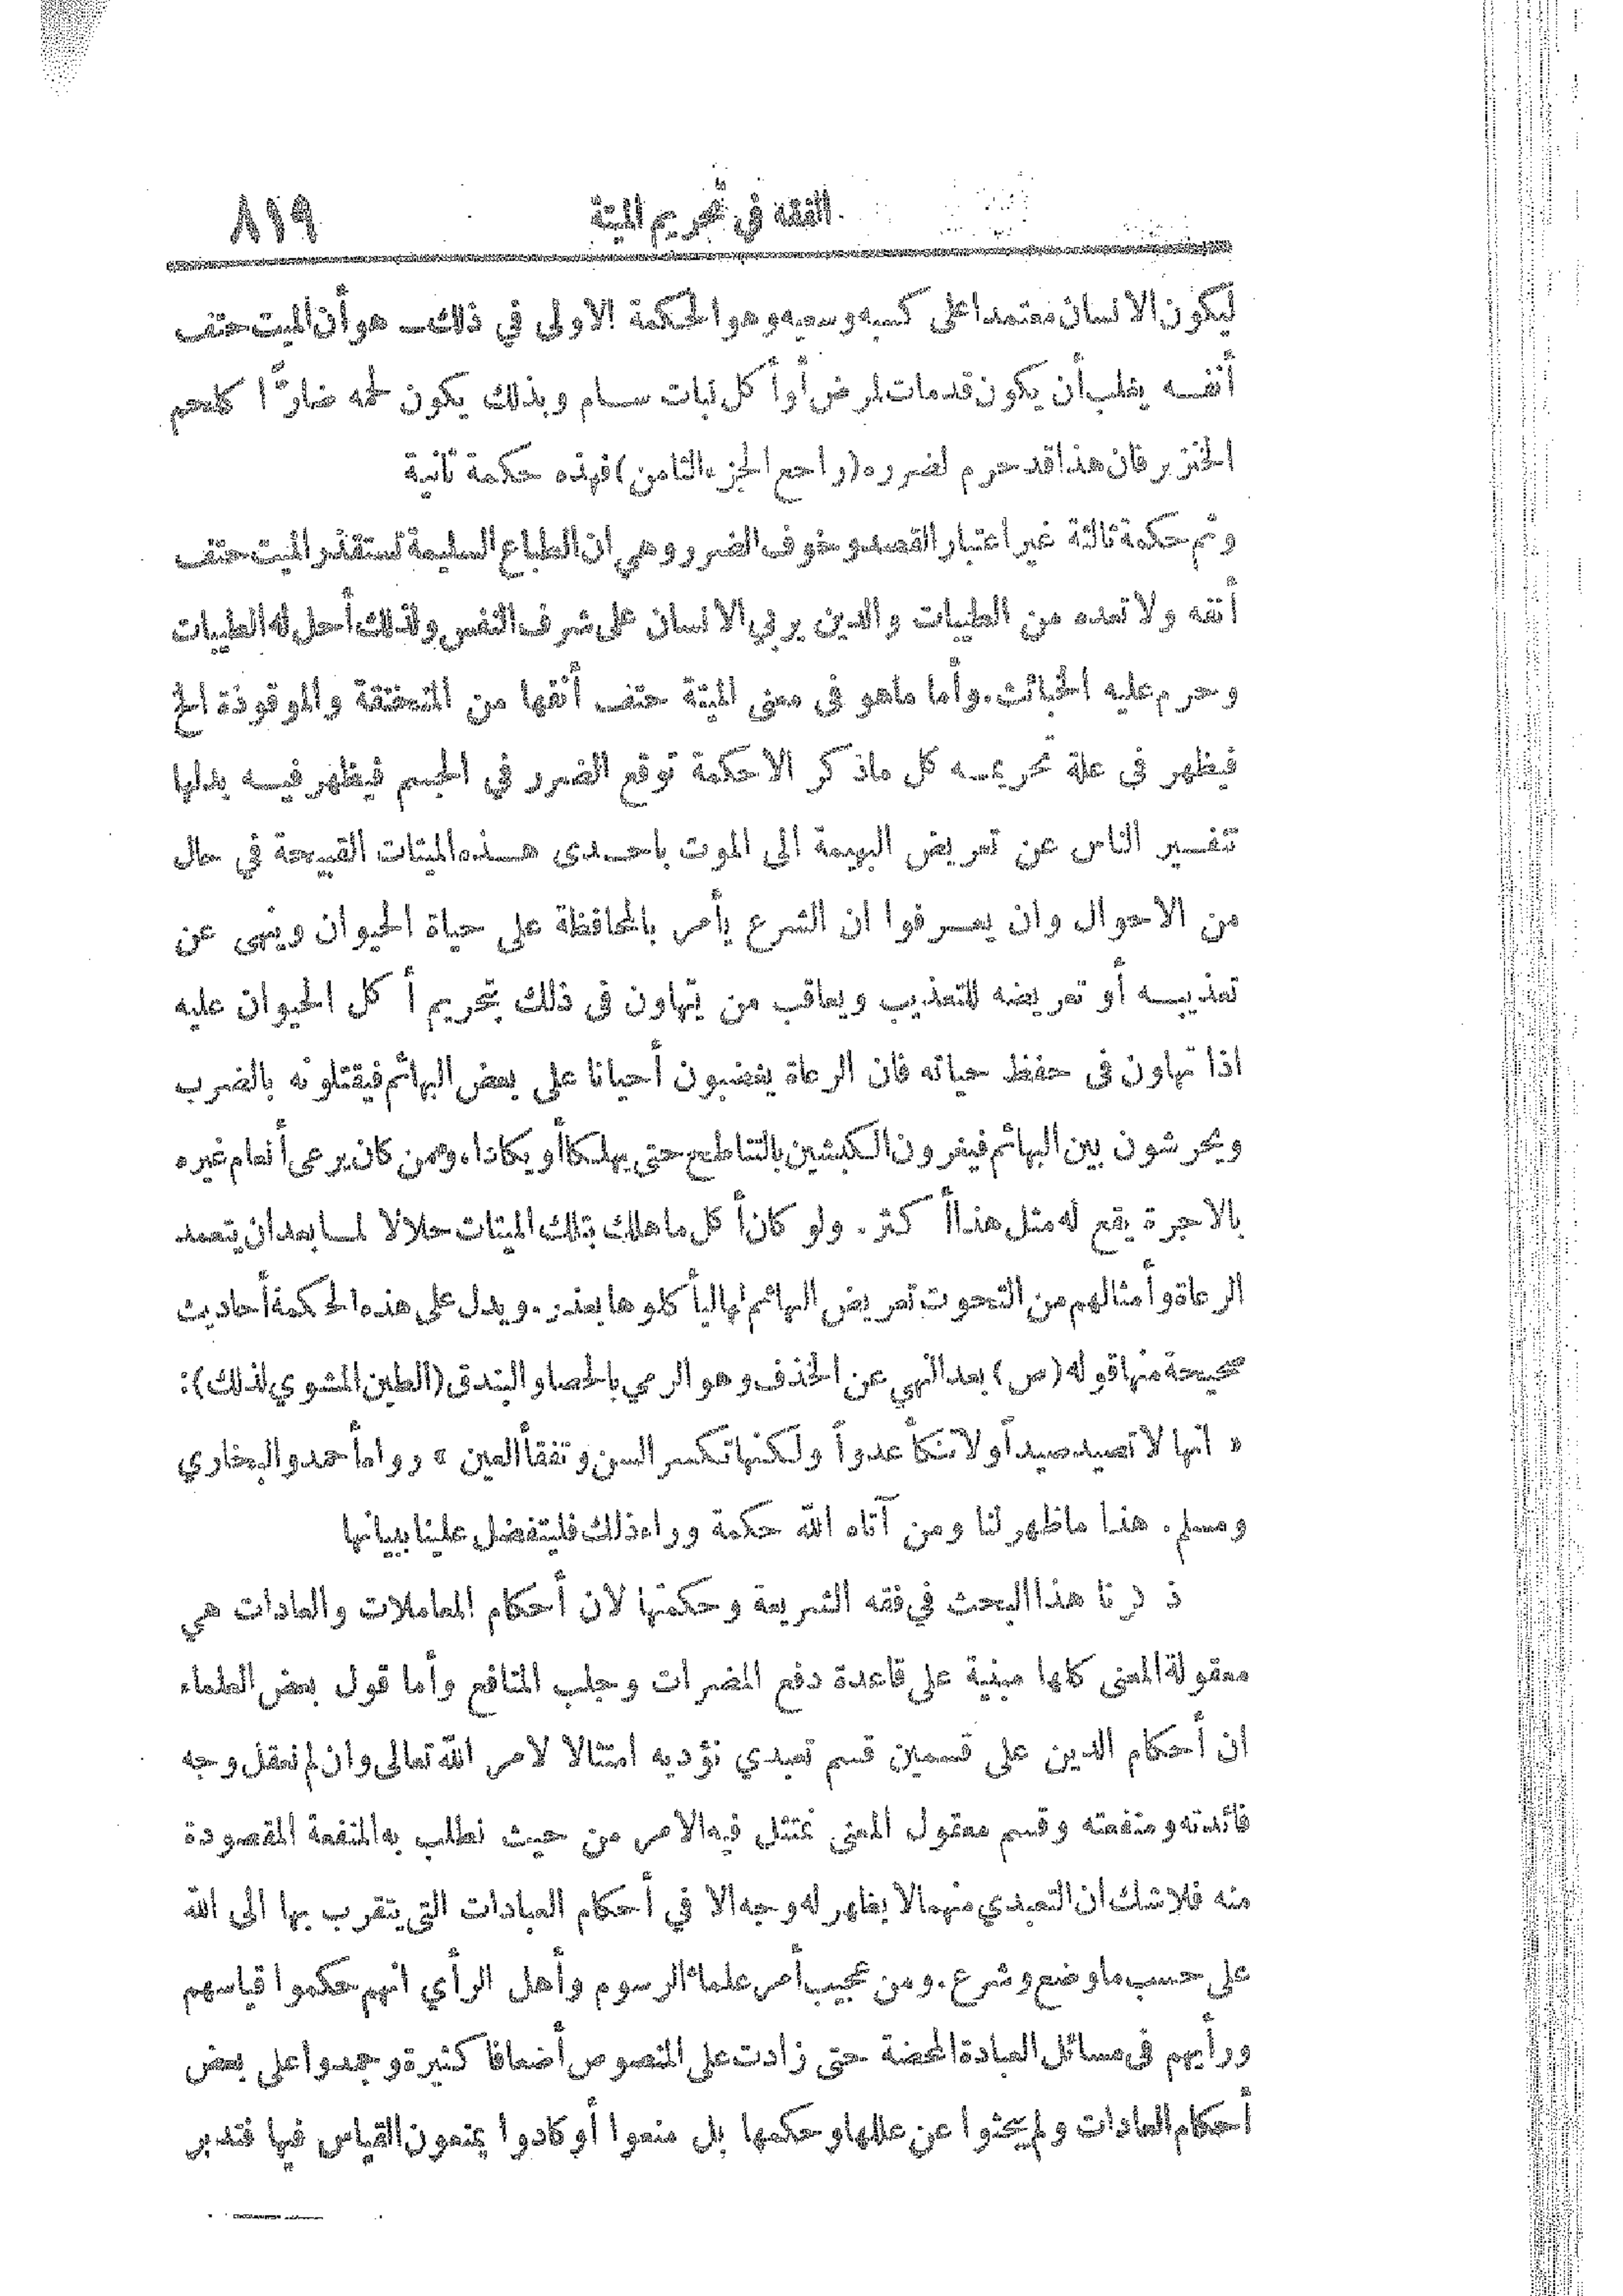 الفقه في تحريم الميتة ٨١٩
ليكون الانسان معتمدا على كسبه وسعيه وهو الحكمة الاولى في ذلك ــ هو أن الميت حتف
أنفـــه يغلب أن يكون قد مات لمرض أو أكل نبات ســام وبذلك يكون لحمه ضارًّا كلحم
الخنزير فان هذا قد حرم لضرره (راجع الجزء الثامن) فهذه حكمة ثانية
وثم حكمة ثالثة غير اعتبار القصد وخوف الضرر وهي ان الطباع السليمة تستقذر الميت حتف
أنفه ولا تعده من الطيبات والدين يربي الانسان على شرف النفس ولذلك أحل له الطيبات
وحرم عليه الخبائث. وأما ماهو في معنى الميتة حتف أنفها من المنخنقة والموقوذة الخ
فيظهر في علة تحريمــه كل ماذكر الا حكمة توقع الضرر في الجسم فيظهر فيــه بدلها
تنفــير الناس عن تعريض البهيمة الى الموت باحــدى هــذه الميتات القبيحة في حال
من الاحوال وان يعــرفوا ان الشرع يأمر بالمحافظة على حياة الحيوان وينهى عن
تعذيبــه أو تعريضه للتعذيب ويعاقب من يتهاون في ذلك بتحريم أكل الحيوان عليه
اذا تهاون في حفظ حياته فان الرعاة يغضبون أحيانا على بعض البهائم فيقتلونه بالضرب
ويحرشون بين البهائم فيغرون الكبشين بالتناطح حتى يهلكا أو يكادا، ومن كان يرعى أنعام غيره
بالاجرة يقع له مثل هذا أكثر. ولو كان أكل ما هلك بتلك الميتات حلالا لمــا بعد ان يتعمد
الرعاة وأمثالهم من التحوت تعريض البهائم لها ليأكلوها بعذر. ويدل على هذه الحكمة أحاديث
صحيحة منها قوله (ص) بعد النهي عن الخذف وهو الرمي بالحصا والبندق (الطين المشوي لذلك):
« انها لا تصيد صيداً ولا تنكأ عدواً ولكنها تكسر السن وتفقأ العين » رواه أحمد والبخاري
ومسلم. هذا ماظهر لنا ومن آتاه الله حكمة وراء ذلك فليتفضل علينا ببيانها
هذا البحث في فقه الشريعة وحكمتها لان أحكام المعاملات والعادات هي
معقولة المعنى كلها مبنية على قاعدة دفع المضرات وجلب المنافع وأما قول بعض العلماء
ان أحكام الدين على قسمين قسم تعبدي نؤديه امتثالا لامر الله تعالى وان لم نعقل وجه
فائدته ومنفعته وقسم معقول المعنى نمتثل فيه الامر من حيث نطلب به المنفعة المقصودة
منه فلا شك ان التعبدي منهما لا يظهر له وجه الا في أحكام العبادات التي يتقرب بها الى الله
على حسب ما وضع وشرع. ومن عجيب أمر علماء الرسوم وأهل الرأي انهم حكموا قياسهم
ورأيهم في مسائل العبادة المحضة حتى زادت على المنصوص أضعافا كثيرة وجمدوا على بعض
أحكام العادات ولم يبحثوا عن عللها وحكمها بل منعوا أو كادوا يمنعون القياس فيها فتدبر